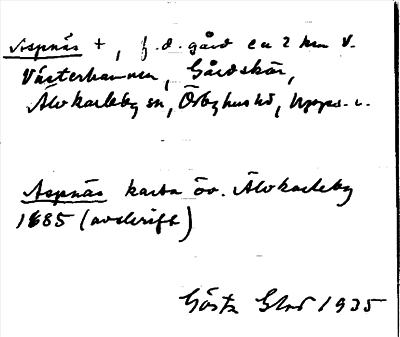 Aspnäs +, f.d. gård ca 2 km V.
Västerhamnen, Gårdskär,
Älvkarleby sn, Örbyhus hd, Upps. l.
Aspnäs karta öv. Älvkarleby
1685 (avskrift)
Gösta 1935